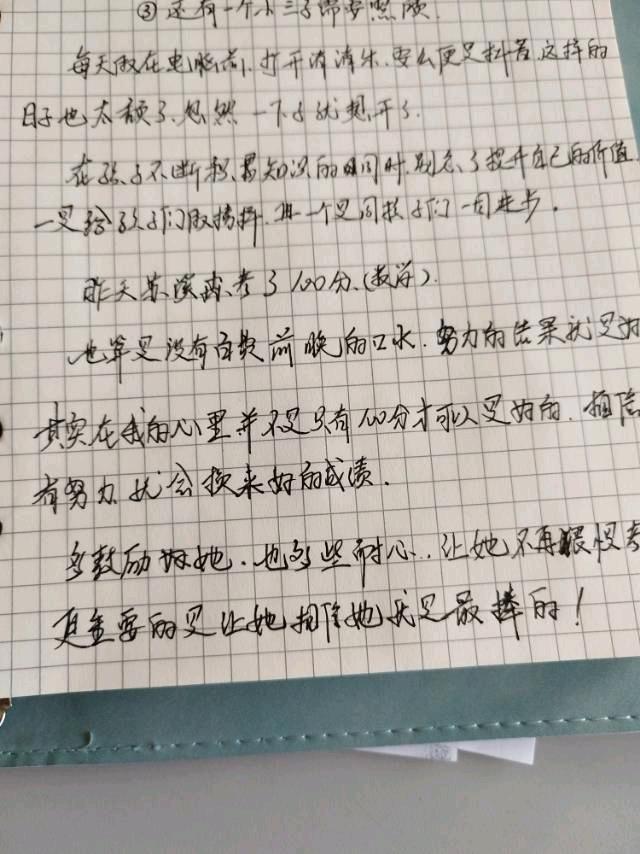 ③还有一个小三子需要照顾.
每天取在电脑前.打开消消乐.要么便是抖音.这样的
日子也太颓了.忽然一下子就想开了.
在孩子不断积累知识的同时.别忘了提升自己的价值
一是给孩子们做榜样.其一个是同孩子们一同进步.
昨天苏溪再考了100分.(数学).
也算是没有白费前晚的口水.努力的结果就是好
其实在我的心里并不是只有100分才可以是好的.相信
有努力就会换来好的成绩.
多鼓励好她.也多些耐心..让她不再畏惧考
更重要的是让她相信她就是最棒的!